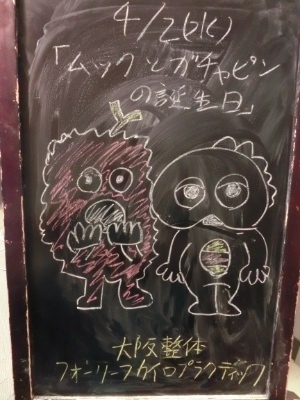 4/2(火)
「ムックとガチャピン
の誕生日」
大阪整体
フォーリーフカイロプラクティック